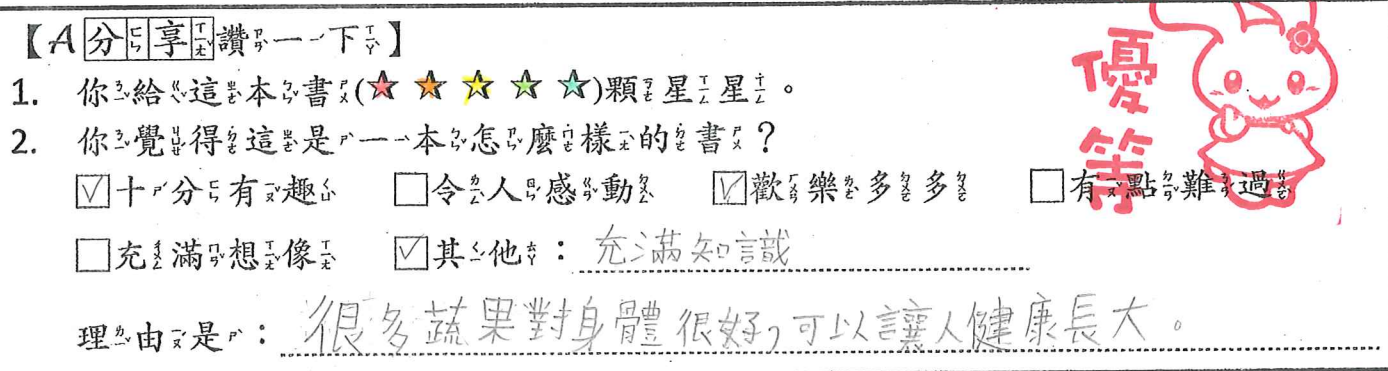 【A分享讚一下】
優等
1. 你給這本書(★★★★★)顆星星。
2. 你覺得這是一本怎麼樣的書？
☑十分有趣 ☐令人感動 ☑歡樂多多 ☐有點難過
☐充滿想像 ☑其他：充滿知識
理由是：很多蔬果對身體很好，可以讓人健康長大。